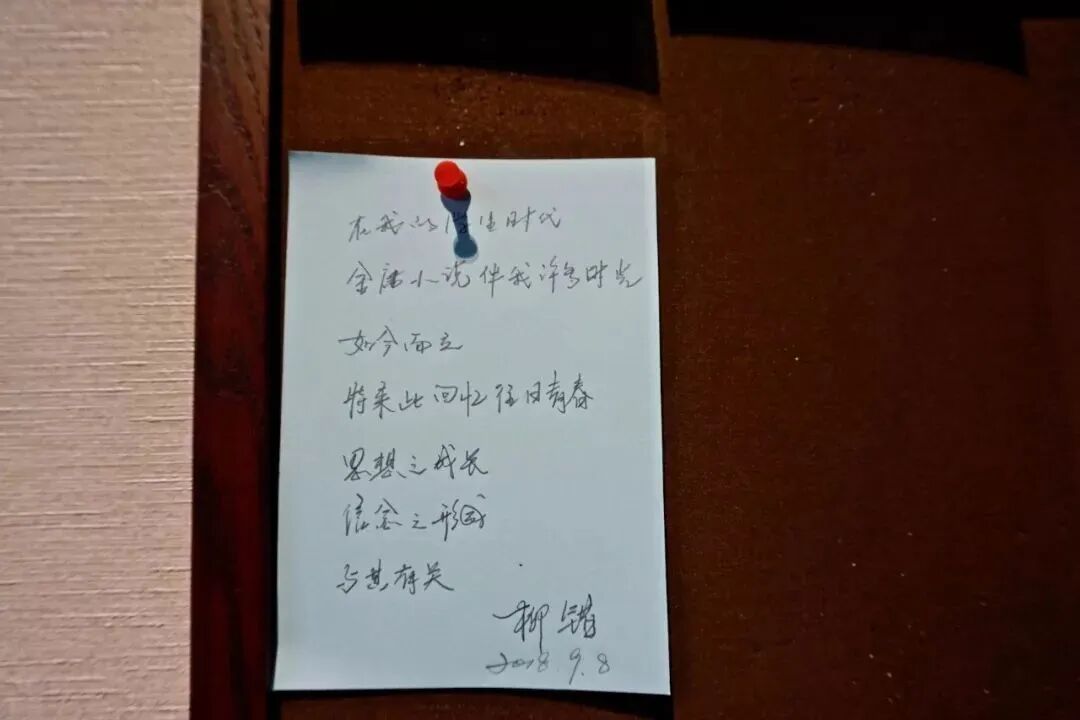 在我的学生时代
金庸小说伴我许多时光
如今而立
特来此回忆往日青春
思想之成长
信念之形成
与其有关
柳
2018.9.8